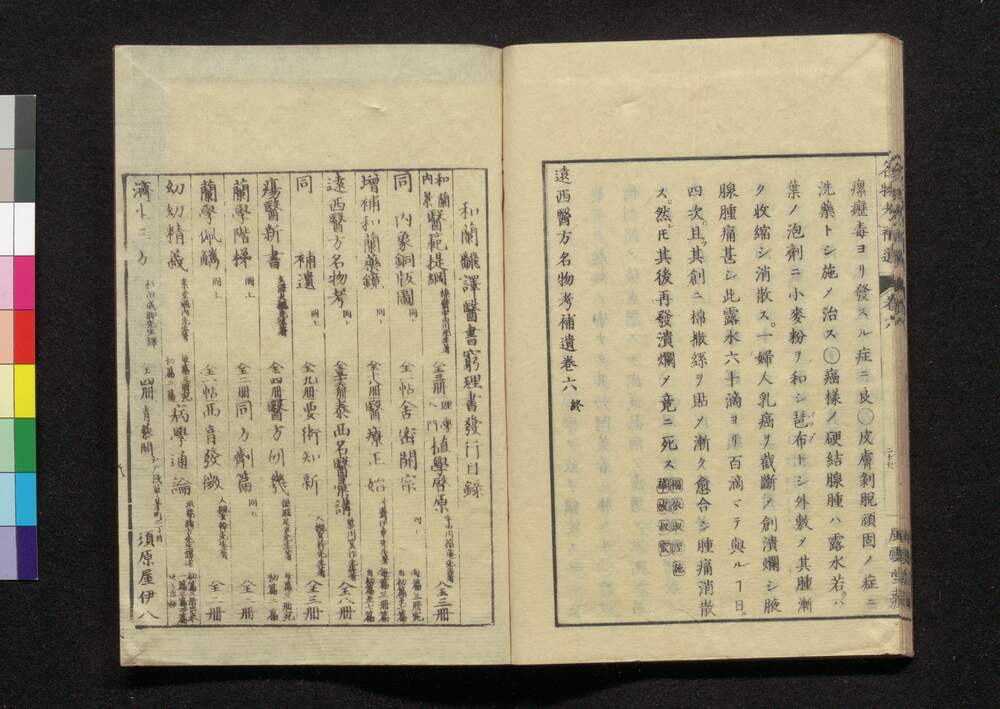 瘰癧毒ヨリ發スル症ニ良○皮膚剝脫頑固ノ症ニ
洗藥トシ施メ治ス○癌樣ノ硬結腺腫ハ露水若ハ
葉ノ泡劑ニ小麥粉ヲ和シ琶布トシ外敷メ其腫漸
ク收縮シ消散ス一婦人乳癌ヲ截斷メ創潰爛シ腋
腺腫痛甚シ此露水六十滴ヨリ百滴マテ與ル丨日
四次且其創ニ綿撒絲ヲ貼メ漸ク愈合シ腫痛消散
ス然𪜈其後再發潰爛メ竟ニ死ス
遠西醫方名物考補遺卷六 終
名物考補遺 卷六
二十七
風雲堂藏
和蘭飜譯醫書窮理書發行目錄
和蘭內景醫範提綱 全三冊 理學入門植學啓原 全三冊
同 內象銅版圖 同 全一帖 舍密開宗
增補和蘭藥鏡 同 全十八冊 醫療正始
遠西醫方名物考 同 泰西名醫彙講 全八冊
同 補遺 同上 全九冊 要術知新 全三冊
瘍醫新書 全四冊 醫方研幾
蘭學階梯 同上 全二冊 同方劑篇 同上 全一冊
蘭學佩觿 同上 全一帖 西音發微 全二冊
幼幼精義 病學通論
濟生三方 全四冊 須原屋伊八